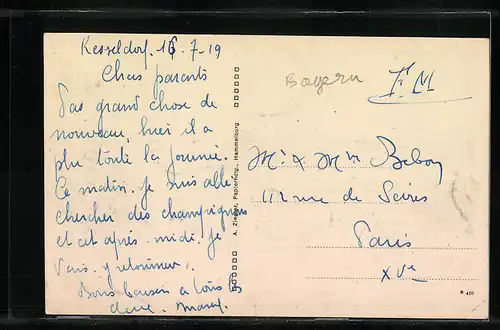 Kesseldorf. 16. 7. 19
Chers parents
Pas grand chose de
nouveau, hier il a
plu toute la journée.
Ce matin. je suis allé
chercher des champignons
et cet après-midi. je
vais y retourner.
Bons baisers à tous les
deux.
A. Ziegler, Papierhdlg., Hammelburg
Bayern
F.M
Mr & Mme
112 rue de
Paris
XVe